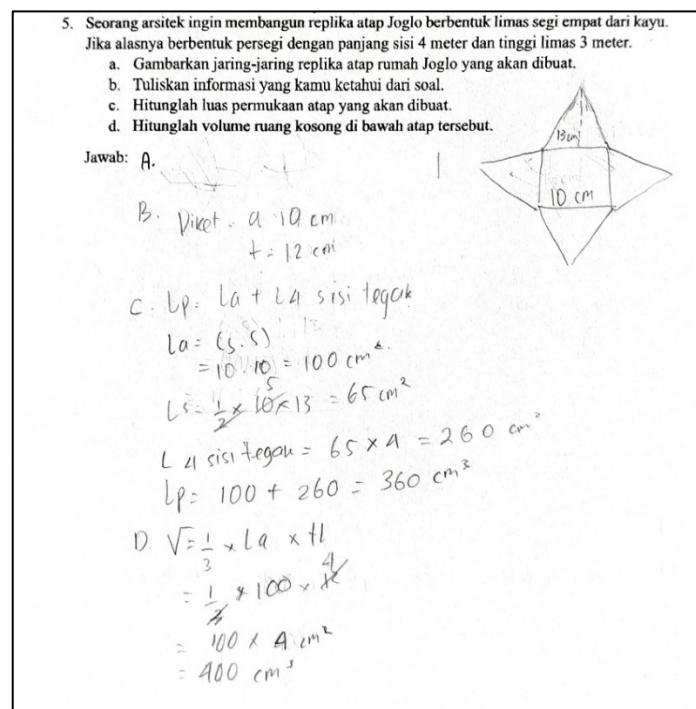 5. Seorang arsitek ingin membangun replika atap Joglo berbentuk limas segi empat dari kayu.
Jika alasnya berbentuk persegi dengan panjang sisi 4 meter dan tinggi limas 3 meter.
a. Gambarkan jaring-jaring replika atap rumah Joglo yang akan dibuat.
b. Tuliskan informasi yang kamu ketahui dari soal.
c. Hitunglah luas permukaan atap yang akan dibuat.
d. Hitunglah volume ruang kosong di bawah atap tersebut.
Jawab: A.
13 cm
10 cm
B. Diket : a 10 cm
t = 12 cm
C. Lp = La + L4 sisi tegak
La = (s.s)
= 10 . 10 = 100 cm²
Ls = 1/2 x 10 5 x 13 = 65 cm²
L 4 sisi tegak = 65 x 4 = 260 cm²
Lp = 100 + 260 = 360 cm³
D. V = 1/3 x La x tl
= 1/3 x 100 x 12 4
= 100 x 4 cm²
= 400 cm³